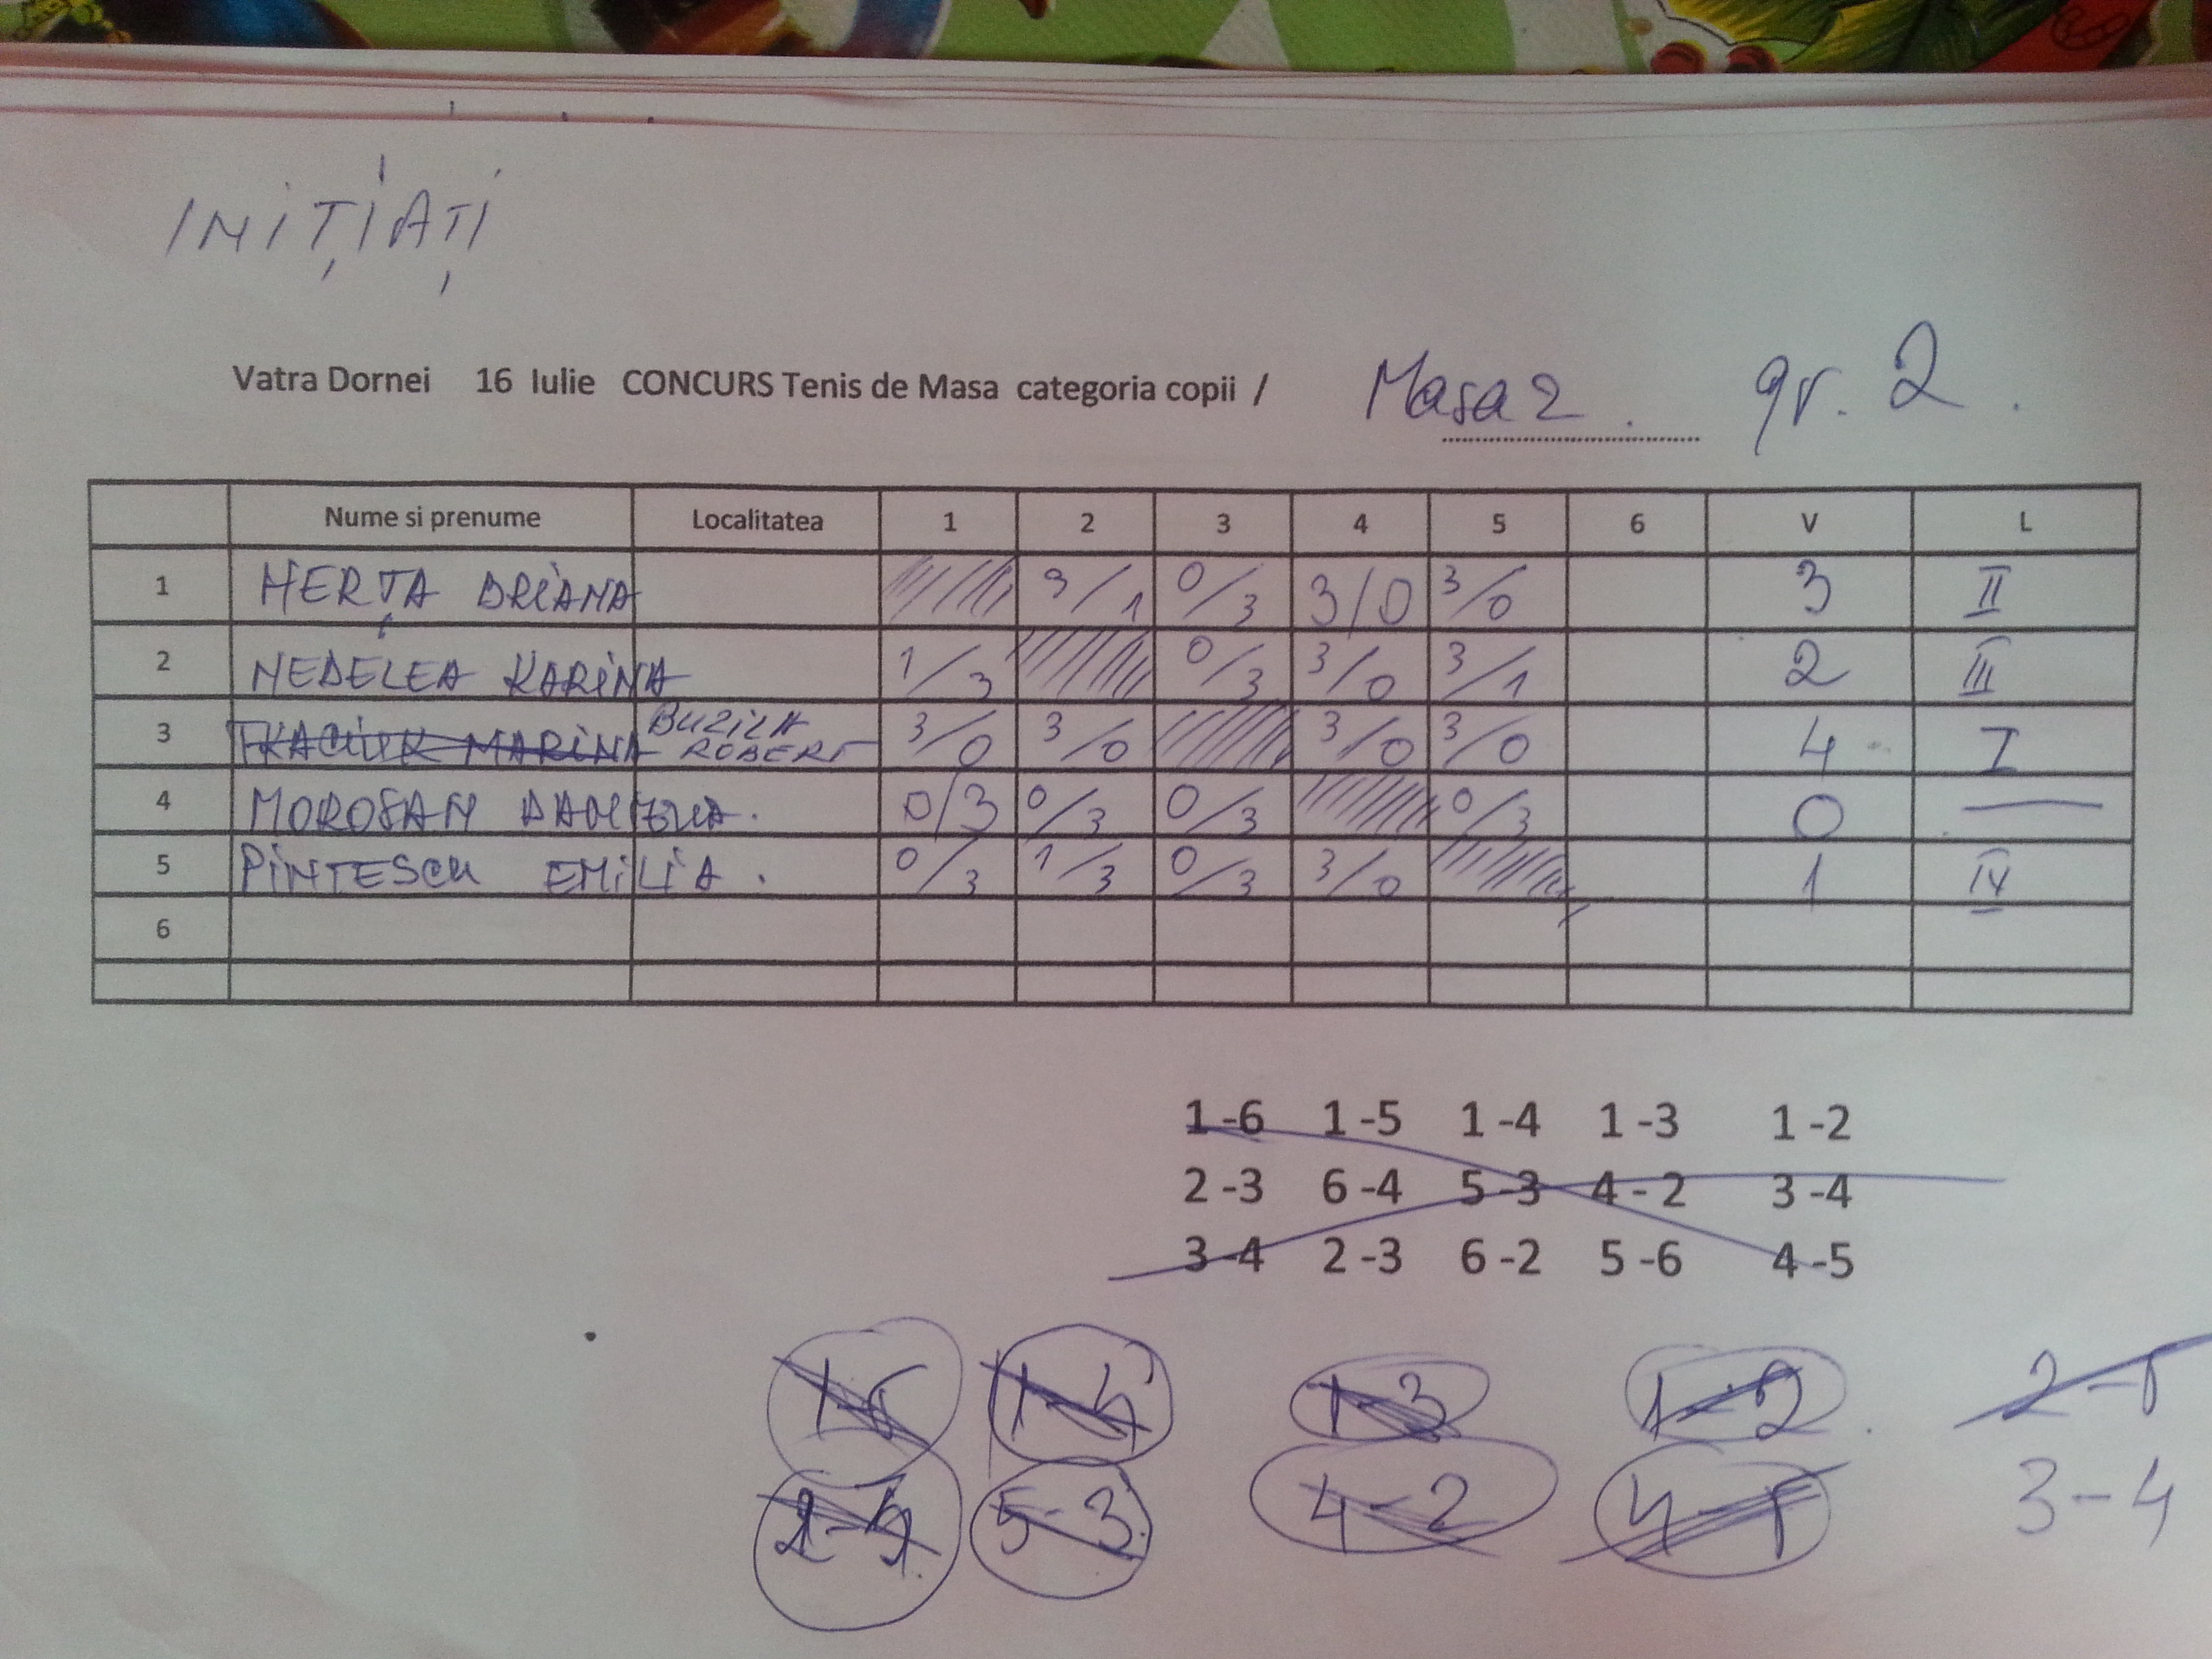 INIȚIAȚI
Vatra Dornei 16 Iulie CONCURS Tenis de Masa categoria copii / Masa 2 . gr. 2 .
Nume si prenume Localitatea 1 2 3 4 5 6 V L
1 HERȚA BRIANA 3/1 0/3 3/0 3/0 3 II
2 NEDELEA KARINA 1/3 0/3 3/0 3/1 2 III
3 TKACIUK MARINA BUZILA ROBERT 3/0 3/0 3/0 3/0 4 I
4 MOROSAN 0/3 0/3 0/3 0/3 0 —
5 PINTESCU EMILIA . 0/3 1/3 0/3 3/0 1 IV
6
1 -6 1 -5 1 -4 1 -3 1 -2
2 -3 6 -4 5 -3 4 - 2 3 -4
3 -4 2 -3 6 -2 5 -6 4 -5
1-5 1-4 1-3 1-2 2-5
5-3 4-2 4-5 3-4